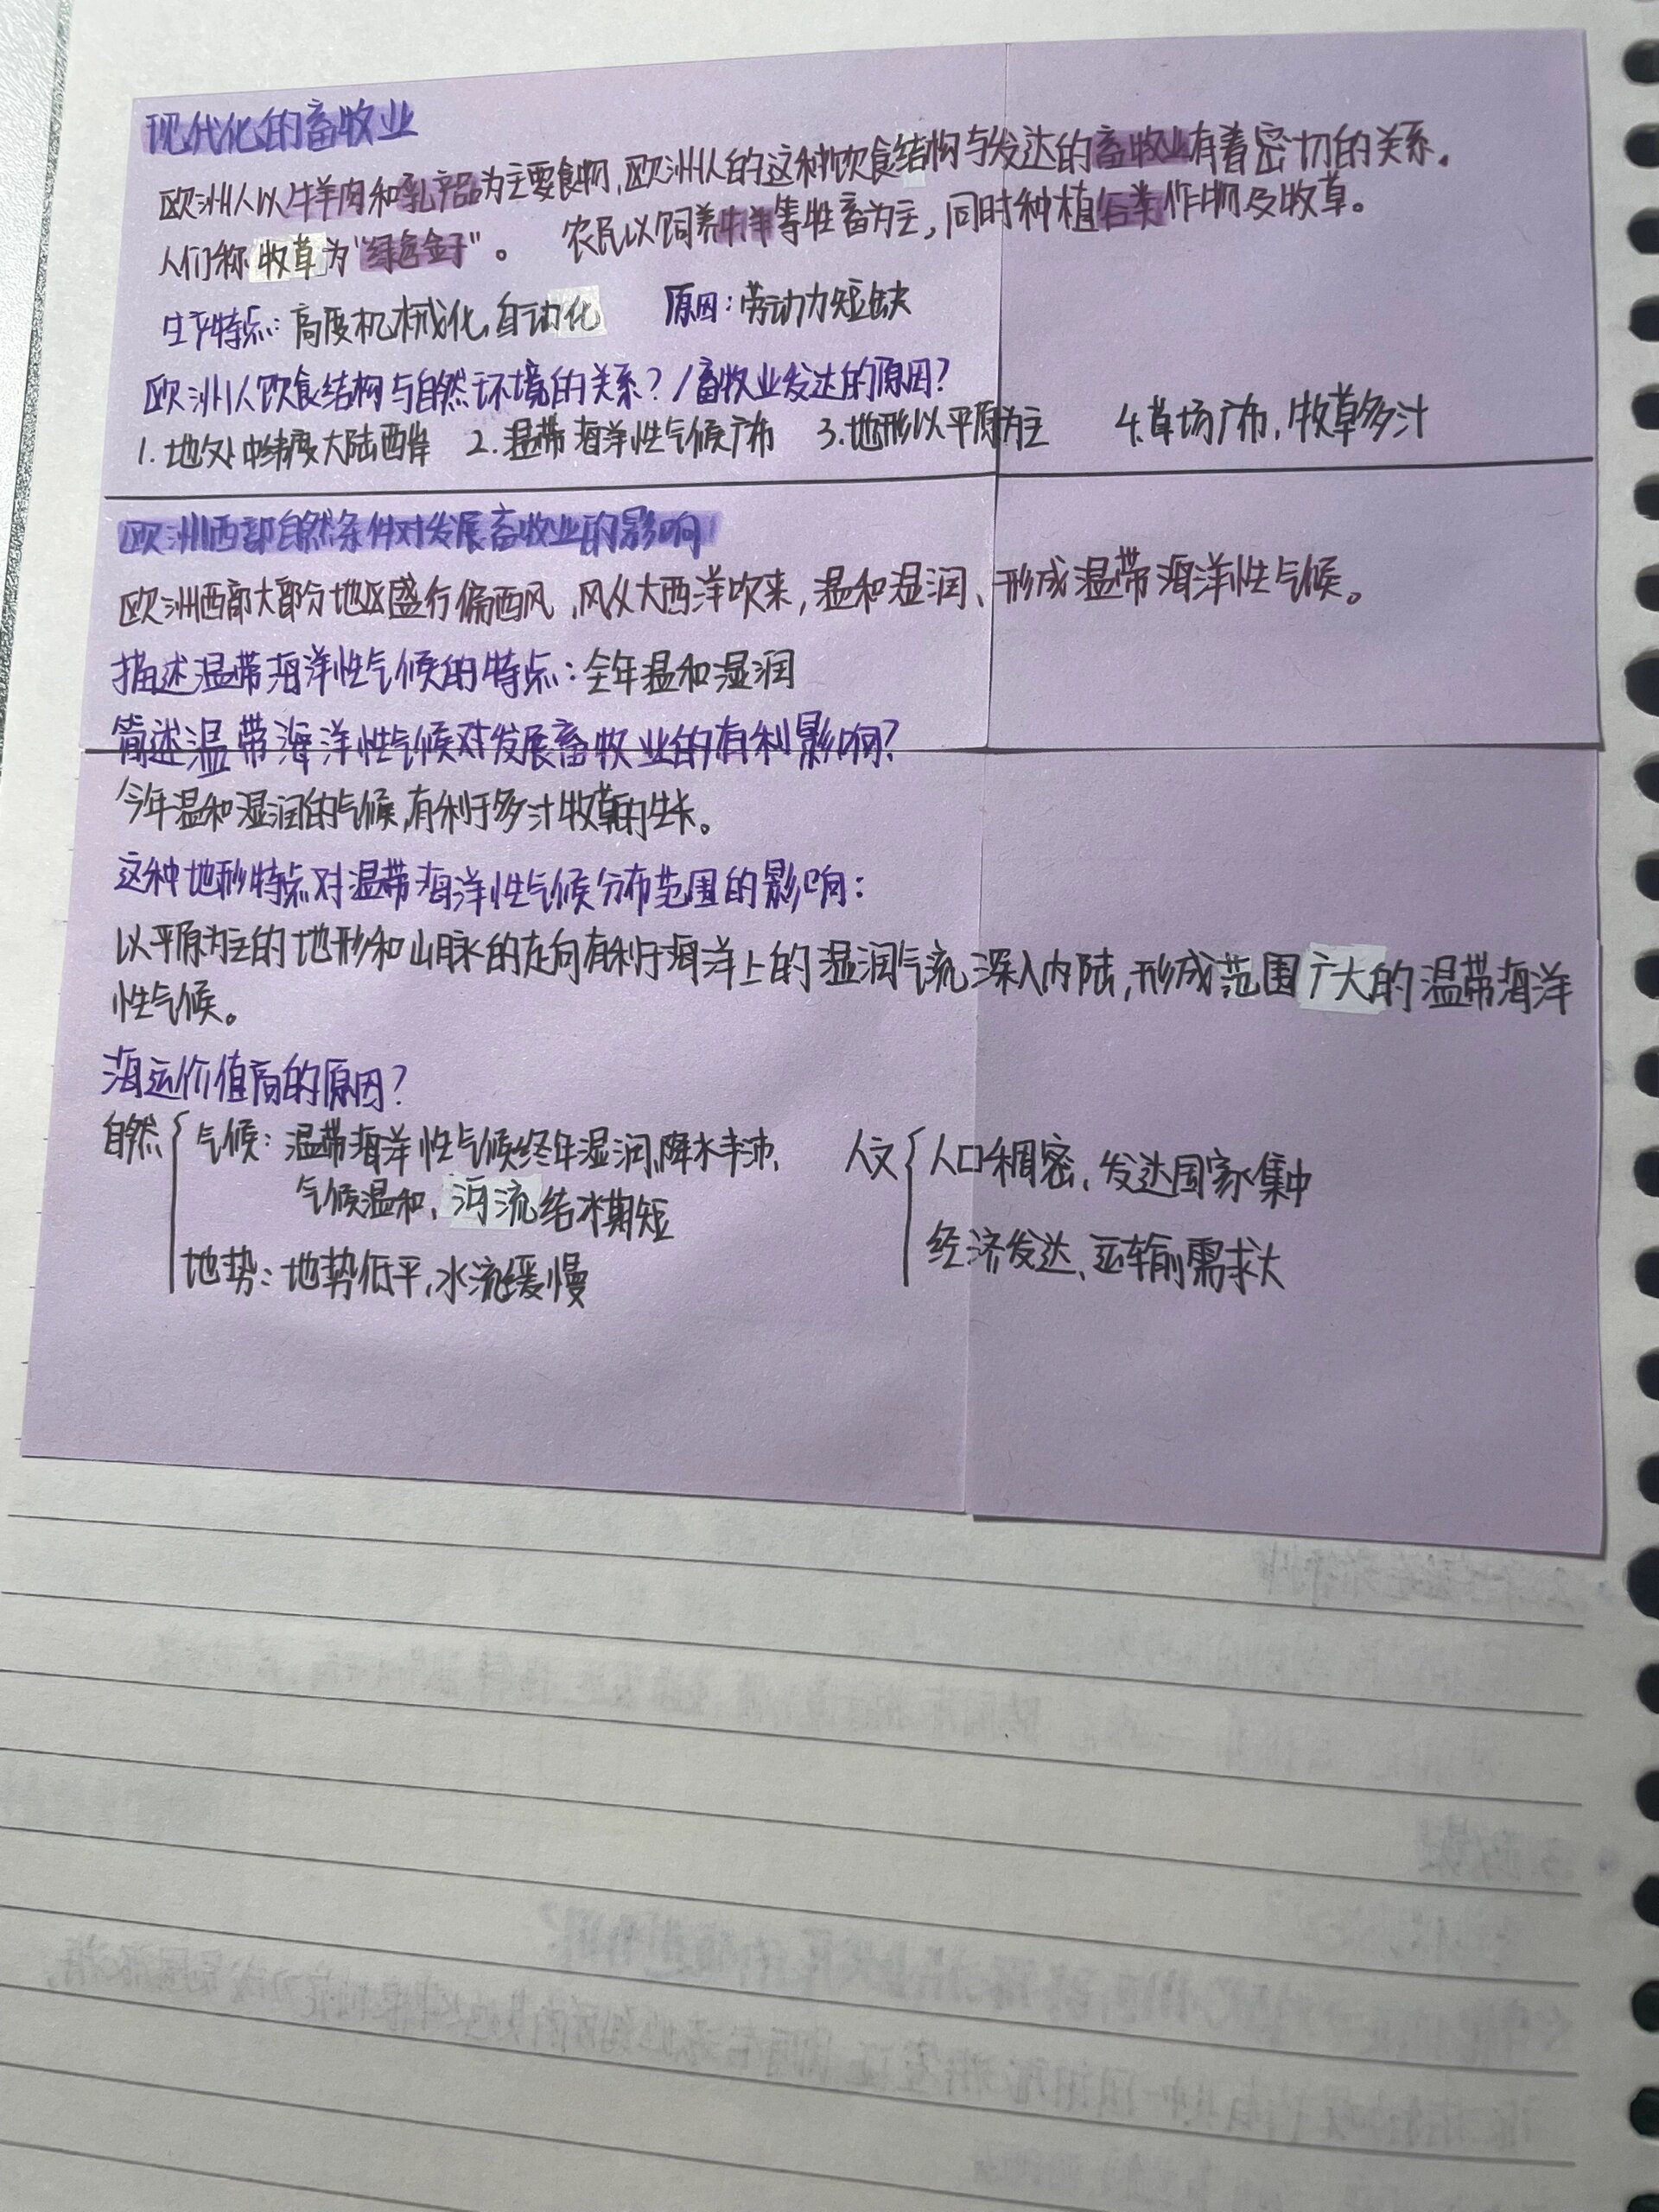 现代化的畜牧业
欧洲人以牛羊肉和乳产品为主要食物,欧洲人的这种饮食结构与发达的畜牧业有着密切的关系。
人们称牧草为"绿色金子"。 农民以饲养牛羊等牲畜为主,同时种植谷类作物及牧草。
生产特点:高度机械化、自动化 原因:劳动力短缺
欧洲人饮食结构与自然环境的关系?/畜牧业发达的原因?
1.地处中纬度大陆西岸 2.温带海洋性气候广布 3.地形以平原为主 4.草场广布,牧草多汁
欧洲西部自然条件对发展畜牧业的影响
欧洲西部大部分地区盛行偏西风,风从大西洋吹来,温和湿润、形成温带海洋性气候。
描述温带海洋性气候的特点:全年温和湿润
简述温带海洋性气候对发展畜牧业的有利影响?
今年温和湿润的气候,有利于多汁牧草的生长。
这种地形特点对温带海洋性气候分布范围的影响:
以平原为主的地形和山脉的走向有利于海洋上的湿润气流深入内陆,形成范围广大的温带海洋
性气候。
海运价值高的原因?
自然 气候:温带海洋性气候终年湿润、降水丰沛、 人文 人口稠密、发达国家集中
气候温和、河流结冰期短
经济发达、运输需求大
地势:地势低平,水流缓慢